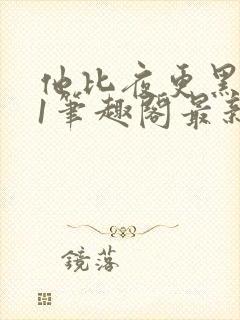 他比夜更黑
1笔趣阁最新
镜落